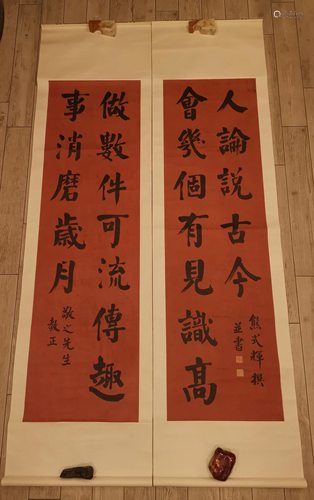 會幾個有見識高
人論説古今
熊式輝撰
並書
做數件可流傳趣
事消磨歲月
敬之先生
教正